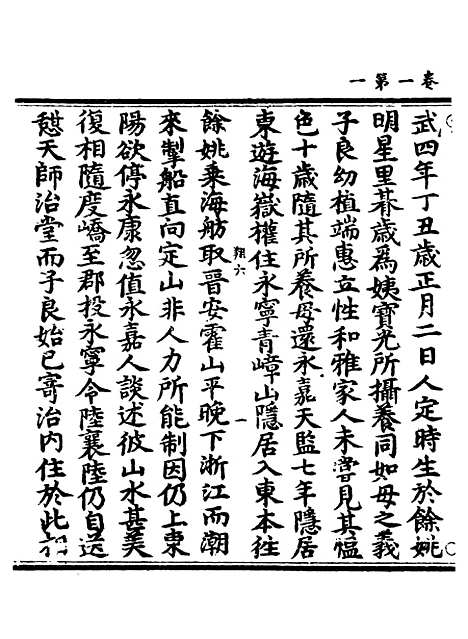 卷第一 一
武四年丁丑歲正月二日人定時生於餘姚
明星里朞歲爲姨寶光所攝養同如母之義
子良幼植端惠立性和雅家人未嘗見其慍
色十歲隨其所養母還永嘉天監七年隱居
東遊海嶽權住永寧青嶂山隱居入東本往
翔六 一
餘姚乗海舫取晉安霍山平晚下浙江而潮
來掣船直向定山非人力所能制因仍上東
陽欲停永康忽值永嘉人談述彼山水甚美
復相隨度嶠至郡投永寧令陸襄陸仍自送
憇天師治堂而子良始已寄治内住於此